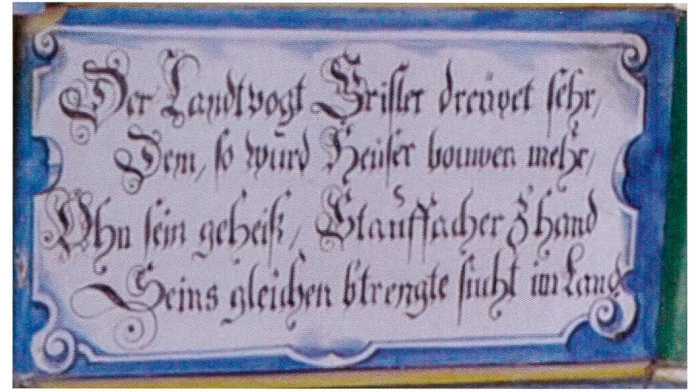 Der Landtvogt Grisler dreüwet sehr,
Dem, so würd Heüser bouwen mehr,
Ohn sein geheiß, Stauffacher z'hand
Seins gleichen b'trengte sucht im Land